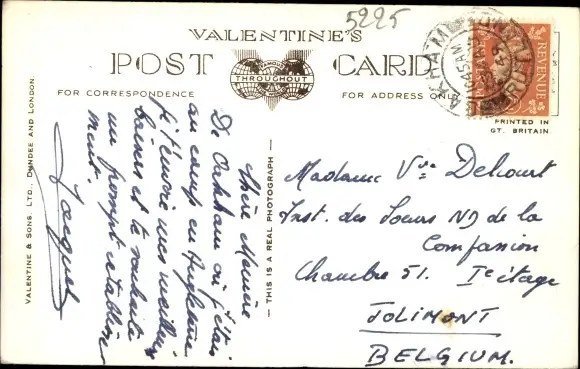 5225
VALENTINE'S
POST CARD
THROUGHOUT
FOR CORRESPONDENCE
FOR ADDRESS ON
REVENUE
PRINTED IN
GT. BRITAIN
VALENTINE & SONS, LTD., DUNDEE AND LONDON.
THIS IS A REAL PHOTOGRAPH
Chère Mémère
De Oakham où j'étais
au camp en Angleterre
je t'envoie mes meilleurs
baisers et te souhaite
un prompt rétablisse
ment.
Jacques
Madame Vve Delcourt
Inst. des Soeurs ND de la
Compassion
Chambre 51. Ie étage
JOLIMONT
BELGIUM.